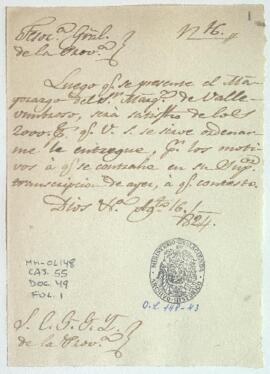 1
Tesor.ª Gral.
de la Prov.ª
Luego q.e se presente el Ma
yorazgo del S.or Marq.s de Valle
umbroso, será satisfho de los
2000. q.e V. S. se sirve ordenar
me le entregue, p.r los moti
vos á q.e se contrahe en su Sup.or
transcripcion de ayer, á q.e contesto.
Dios &.ª Ag.to 16,,
1824.
MH-OL148
CAJ. 55
DOC. 49
FOL. 1
O.L. 148-43
S. C. G. G. I.
de la Prov.ª